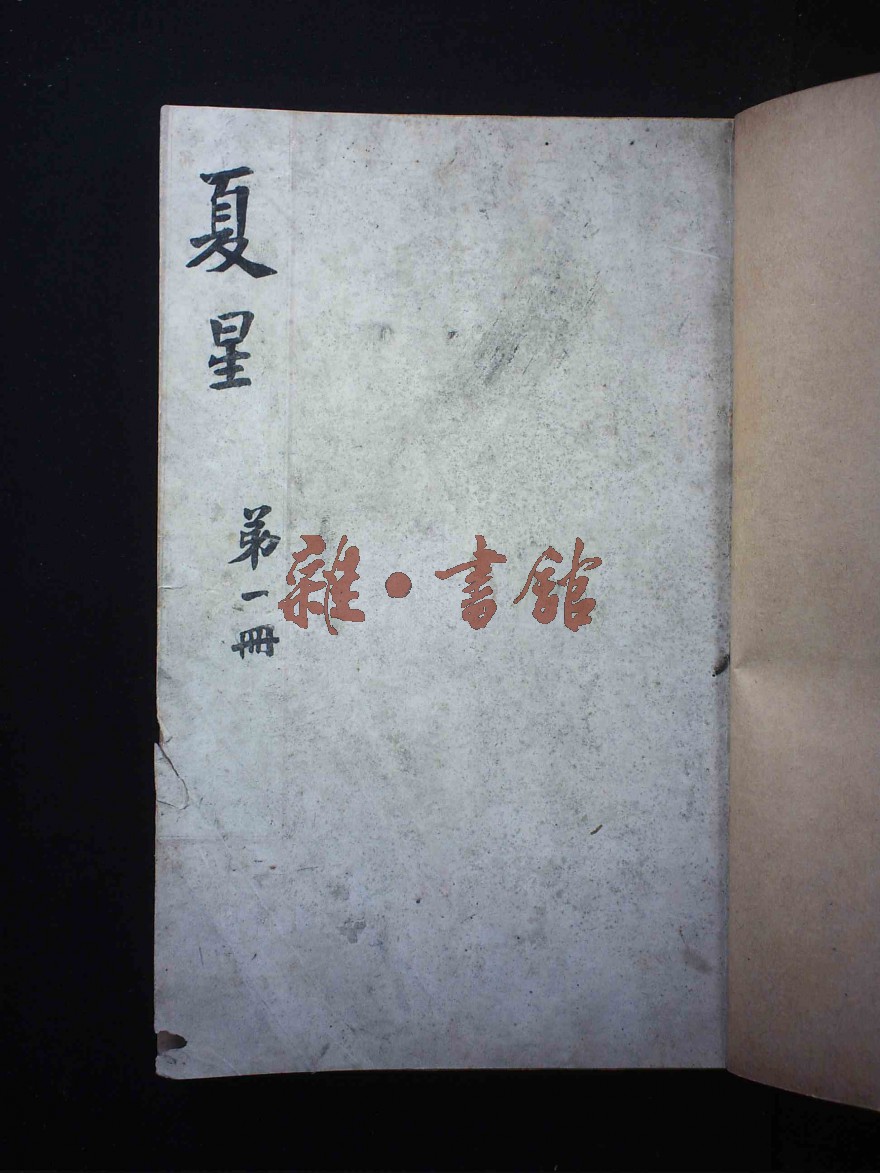 夏星
第一冊
雜·書館